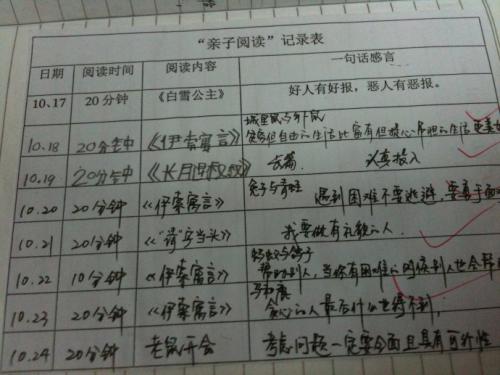 “亲子阅读”记录表
日期 阅读时间 阅读内容 一句话感言
10.17 20分钟 《白雪公主》 好人有好报，恶人有恶报。
城里鼠与乡下鼠
10.18 20分钟 《伊索寓言》 贫穷但自由的生活比富有但担心
10.19 20分钟 认真投入
10.20 20分钟 《伊索寓言》 遇到困难不要逃避，要勇于面对
10.21 20分钟 我要做有礼貌的人.
蚂蚁与鸽子
10.22 10分钟 《伊索寓言》 帮助别人，当你有困难的时候别人也会帮
10.23 20分钟 《伊索寓言》 贪心的人最后什么也得不到，
10.24 20分钟 老鼠开会 考虑问题一定要全面且具有可行性